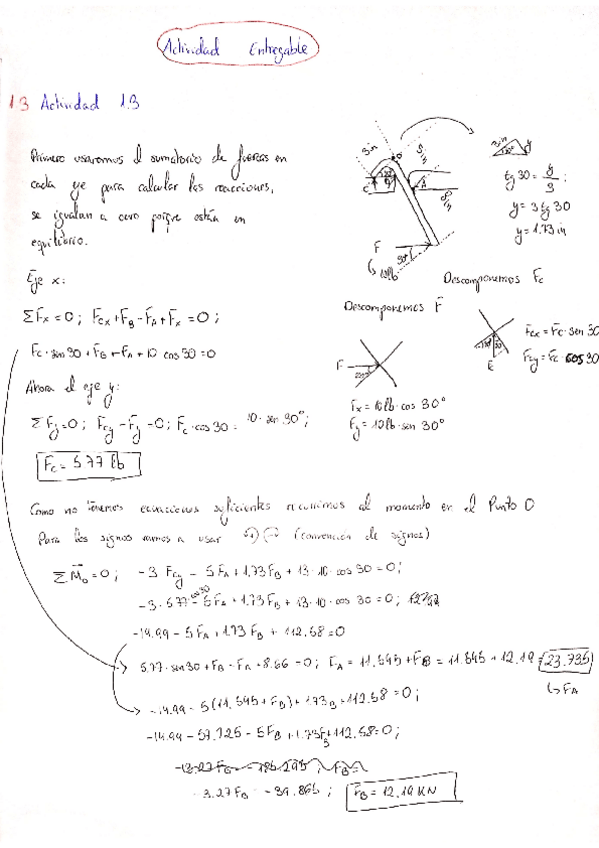 Actividad Entregable
1.3 Actividad 1.3
Primero usaremos el sumatorio de fuerzas en
cada eje para calcular las reacciones,
se igualan a cero porque están en
equilibrio.
Eje x:
ΣFx = 0; Fcx + FB - FA + Fx = 0;
Fc · sen 30 + FB - FA + 10 cos 30 = 0
Ahora el eje y:
ΣFy = 0; Fcy - Fy = 0; Fc · cos 30 = 10 · sen 30°;
Fc = 5.77 lb
3 in
5 in
8 in
F
10 lb
30°
tg 30 = y/3;
y = 3 tg 30
y = 1.73 in
Descomponemos Fc
Fcx = Fc · sen 30
Fcy = Fc cos 30
Descomponemos F
F
Fx = 10 lb · cos 30°
Fy = 10 lb · sen 30°
Como no tenemos ecuaciones suficientes recurrimos al momento en el Punto O
Para los signos vamos a usar (convención de signos)
ΣMo = 0; -3 Fcy - 5 FA + 1.73 FB + 13 · 10 · cos 30 = 0;
-3 · 5.77 · cos 30 - 5 FA + 1.73 FB + 13 · 10 · cos 30 = 0;
-14.99 - 5 FA + 1.73 FB + 112.58 = 0
5.77 · sen 30 + FB - FA + 8.66 = 0; FA = 11.545 + FB = 11.545 + 12.19 = 23.735
↳ FA
-14.99 - 5(11.545 + FB) + 1.73 FB + 112.58 = 0;
-14.99 - 57.725 - 5 FB + 1.73 FB + 112.58 = 0;
-3.27 FB = -39.865; FB = 12.19 KN